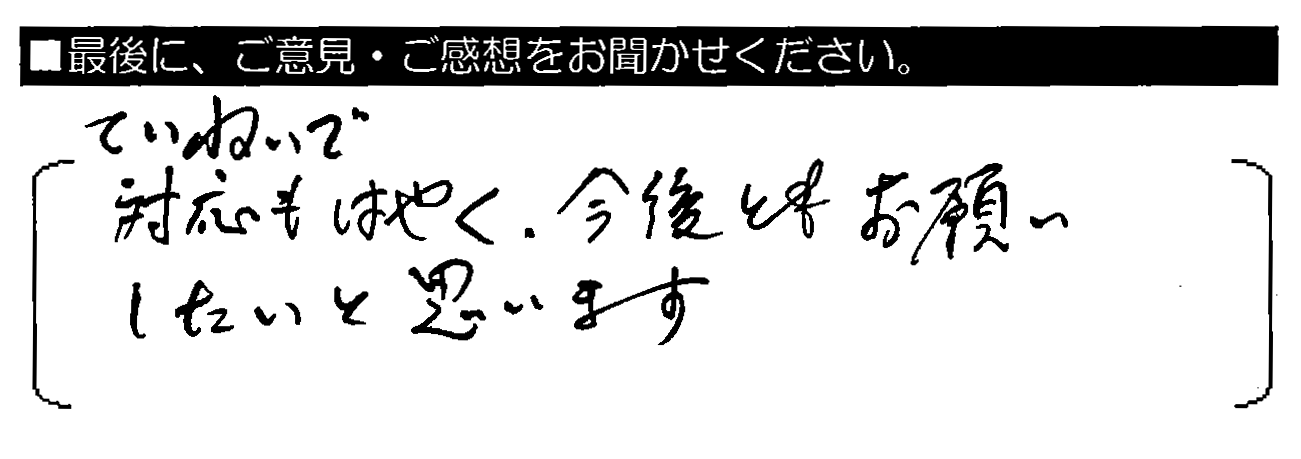 ■最後に、ご意見・ご感想をお聞かせください。
ていねいで
対応もはやく.今後ともお願い
したいと思います